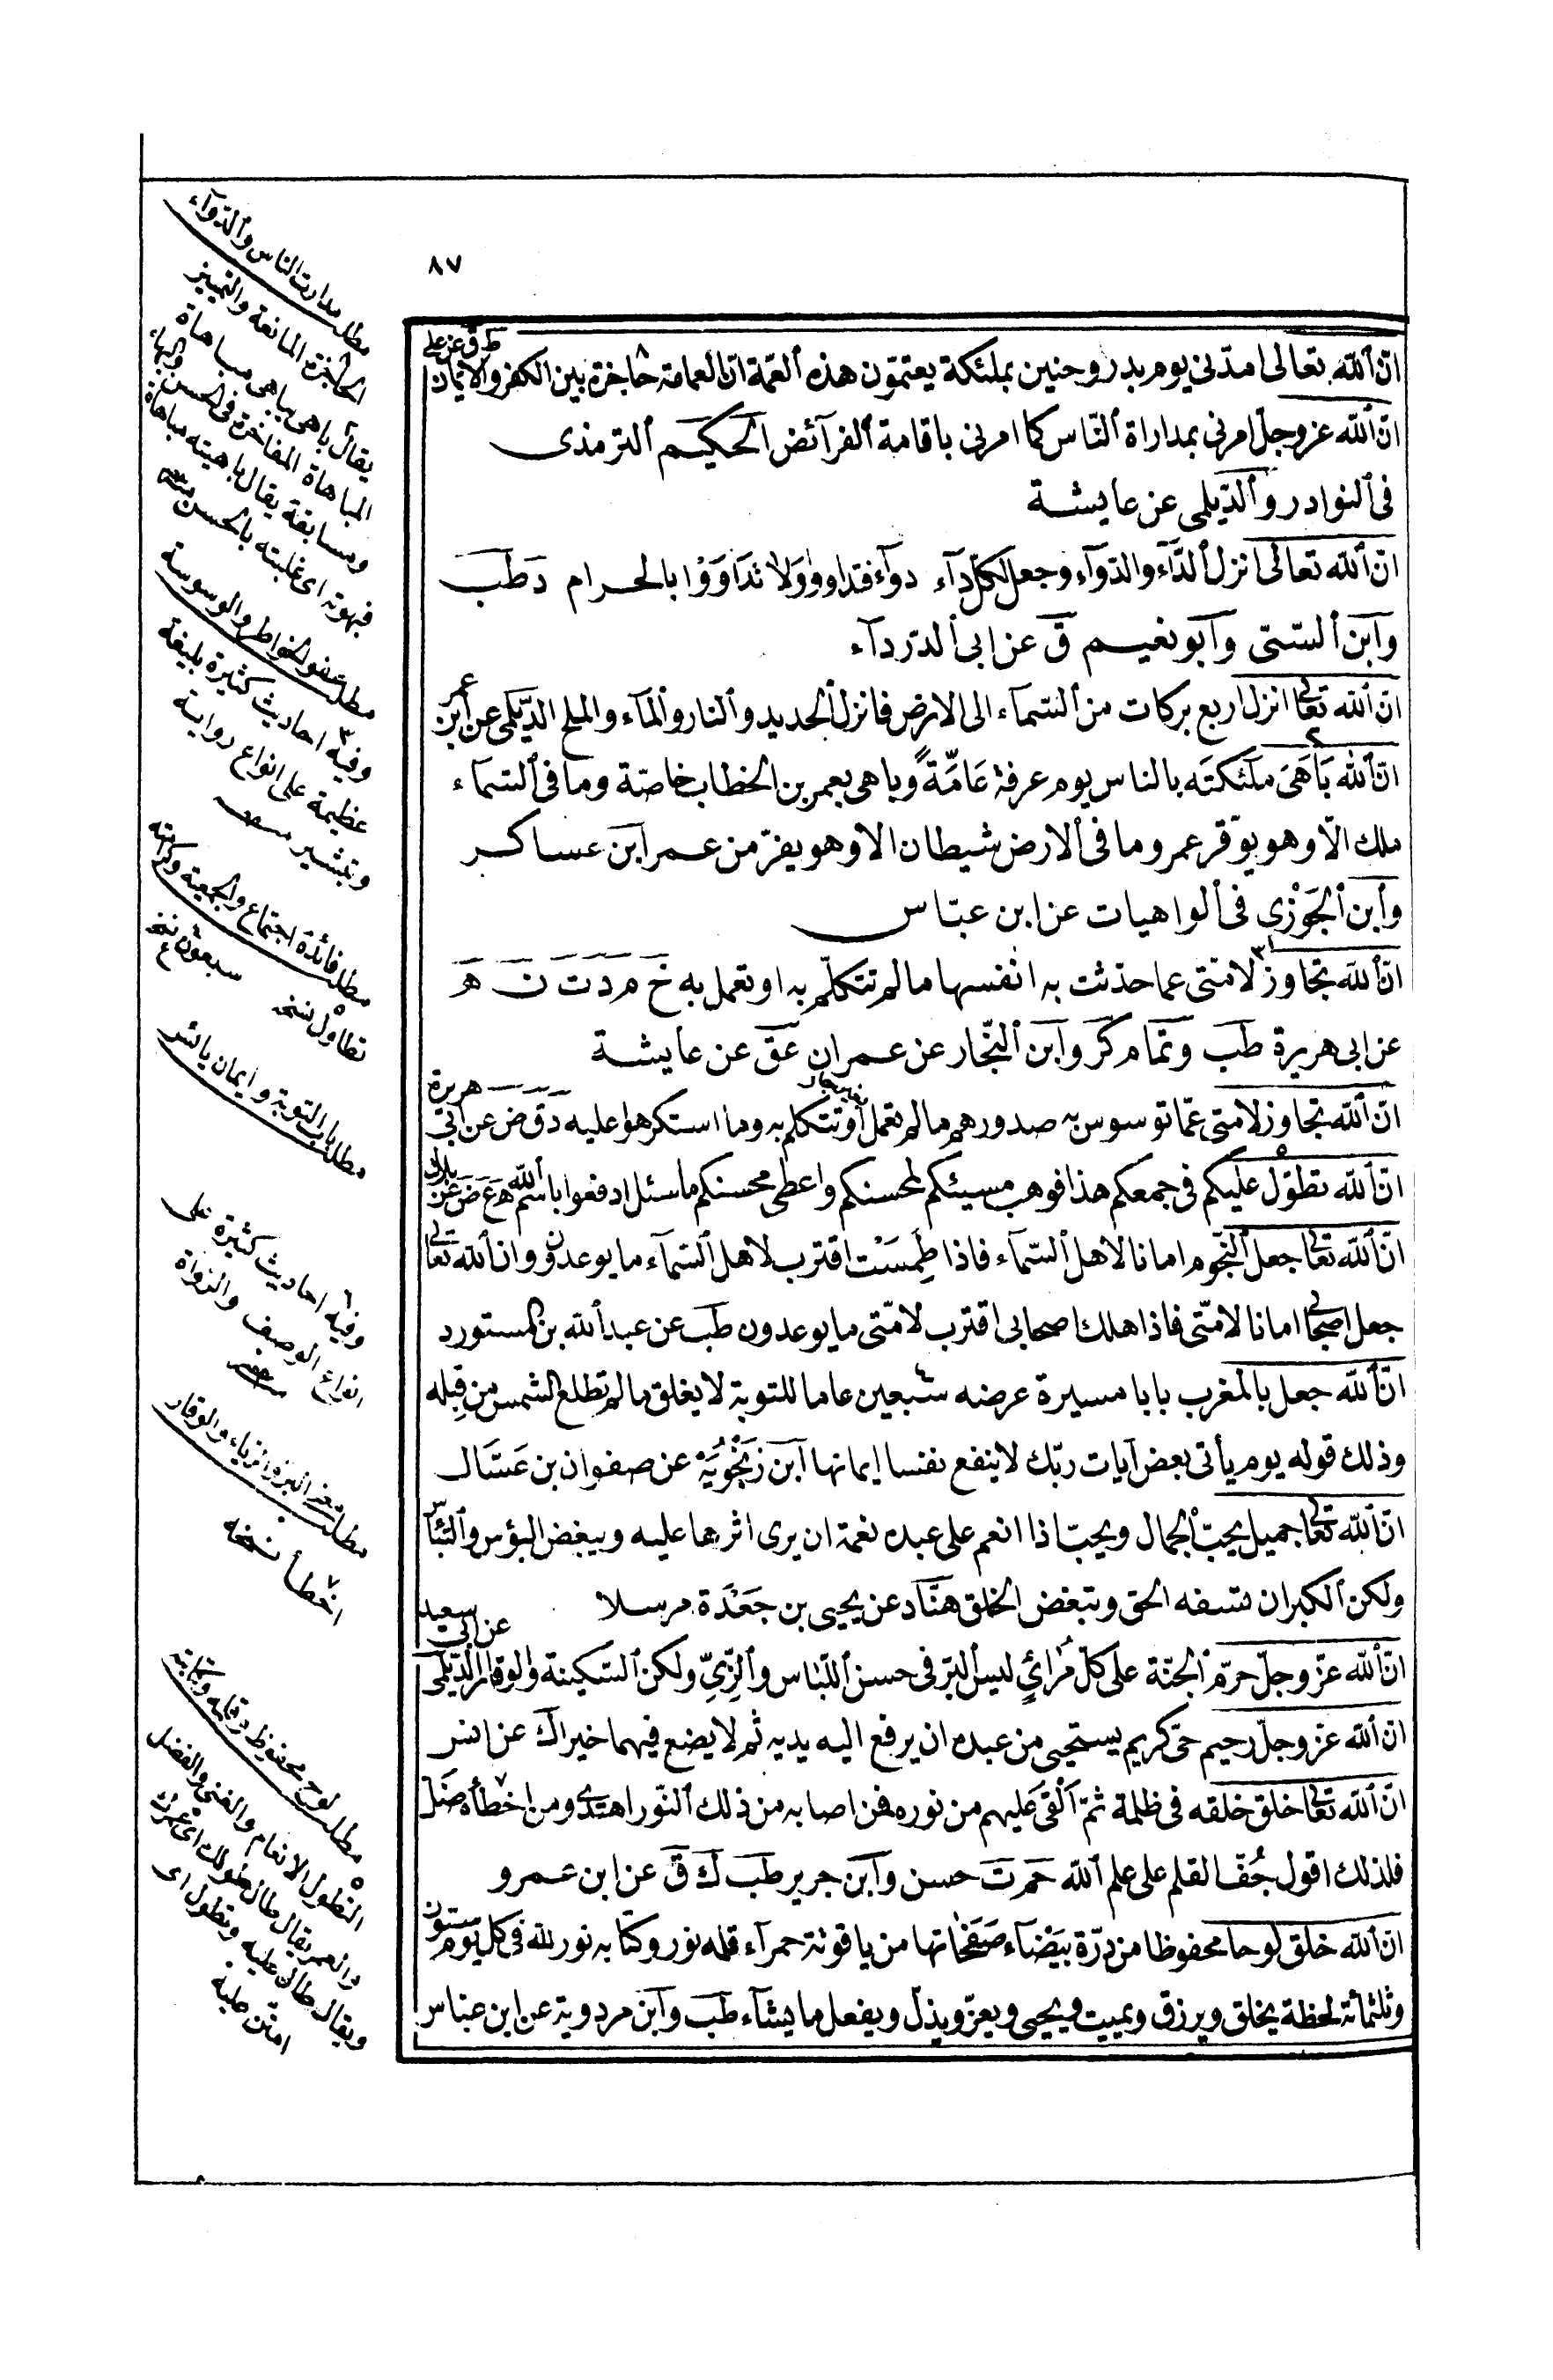 ٨٧
انّ الله تعالى امدّنى يوم بدر وحنين بملئكة يعتمّون هذه العمّة ان العمامة حاجزة بين الكفر والايمان ط ق عن على
انّ الله عز وجلّ امرنى بمداراة النّاس كما امرنى باقامة الفرآئض الحكيم الترمذى
فى النوادر والدّيلمى عن عايشة
انّ الله تعالى انزل الدّآء والدّوآء وجعل لكلّ دآء دوآء فتداووا ولا تداووا بالحرام د طب
وابن السّنّى وابو نعيم ق عن ابى الدّردآء
انّ الله تعالى انزل اربع بركات من السّمآء الى الارض فانزل الحديد والنار والمآء والملح الدّيلمى عن ابن عمر
انّ الله باهى ملئكته بالناس يوم عرفة عامّةً وباهى بعمر بن الخطاب خاصّة وما فى السّمآء
ملك الّا وهو يوقر عمر وما فى الارض شيطان الا وهو يفرّ من عمر ابن عساكر
وابن الجَوْزى فى الواهيات عن ابن عبّاس
انّ الله تجاوز لامّتى عما حدّثت به انفسها ما لم تتكلّم به او تعمل به خ م د ت ن ه
عن ابى هريرة طب وتمام كر وابن النّجار عن عمران عق عن عايشة
انّ الله تجاوز لامتى عمّا توسوس به صدورهم ما لم تعمل او تتكلم به وما استكرهوا عليه ه ق ض عن ابى هريرة
انّ الله تطوّل عليكم فى جمعكم هذا فوهب مسيئكم لمحسنكم واعطى محسنكم ما سئل ادفعوا باسم الله ه ع ض عن بلال
انّ الله تعالى جعل النّجوم امانا لاهل السّمآء فاذا طُمِسَتْ اقترب لاهل السّمآء ما يوعدون وان الله تعالى
جعل اصحابى امانا لامّتى فاذا هلك اصحابى اقترب لامّتى ما يوعدون طب عن عبد الله بن المستورد
انّ الله جعل بالمغرب بابا مسيرة عرضه سبعين عاما للتوبة لا يغلق ما لم تطلع الشمس من قِبله
وذلك قوله يوم يأتى بعض آيات ربّك لا ينفع نفسا إيمانها ابن زَنْجُويَهْ عن صفوان بن عَسّال
انّ الله تعالى جميل يحبّ الجمال ويحبّ اذا انعم على عبده نعمة ان يرى اثرها عليه ويبغض البؤس والتبأس
ولكن الكبر ان تسفه الحق وتبغض الخلق هنّاد عن يحيى بن جَعْدَة مرسلا
انّ الله عزّ وجلّ حرّم الجنّة على كلّ مُرائٍ ليس البرّ فى حسن اللّباس والزّىّ ولكن السّكينة والوقار الدّيلمى عن ابى سعيد
انّ الله عزّ وجلّ رحيم حىّ كريم يستحيى من عبده ان يرفع اليه يديه ثم لا يضع فيهما خيرا ك عن انس
انّ الله تعالى خلق خلقه فى ظلمة ثمّ اَلْقَى عليهم من نوره فمن اصابه من ذلك النّور اهتدى ومن اخطأه ضَلّ
فلذلك اقول جُفّ القلم على علم الله حم ت حسن وابن جرير طب ك ق عن ابن عمرو
انّ الله خلق لوحا محفوظا من درّة بَيْضآء صفحاتها من ياقوتة حمرآء قلمه نور وكتابه نور لله فى كل يوم ستون
وثلثمائة لحظة يخلق ويرزق ويميت ويحيى ويعزّ ويذلّ ويفعل ما يشآء طب وابن مردوية عن ابن عبّاس
مطلب مدارت الناس والدّوآء
الحاجزة المانعة والتمييز
يقال باهى يباهى مباهاة
المباهاة المفاخرة فى الحسن والبهاء
ومسابقة يقال باهيته مباهاة
فبهوته اى غلبته بالحسن
مطلب عفو الخواطر والوسوسة
وفيه احاديث كثيرة بليغة
عظيمة على انواع رواية
وتبشير
مطلب فائدة اجتماع والجمعية
تطاول نسخه
سبعون نسخ
مطلب باب التوبة وايمان يائس
وفيه احاديث كثيرة على
انواع الوصف والرواة
مطلب والوقار
اخطأ نسخه
مطلب لوح محفوظ وقلمه وكتابه
التطول الانعام والغنى والفضل
والعمر يقال طال طولك اى عمرك
ويقال طال عليه وتطول اى
امتن عليه